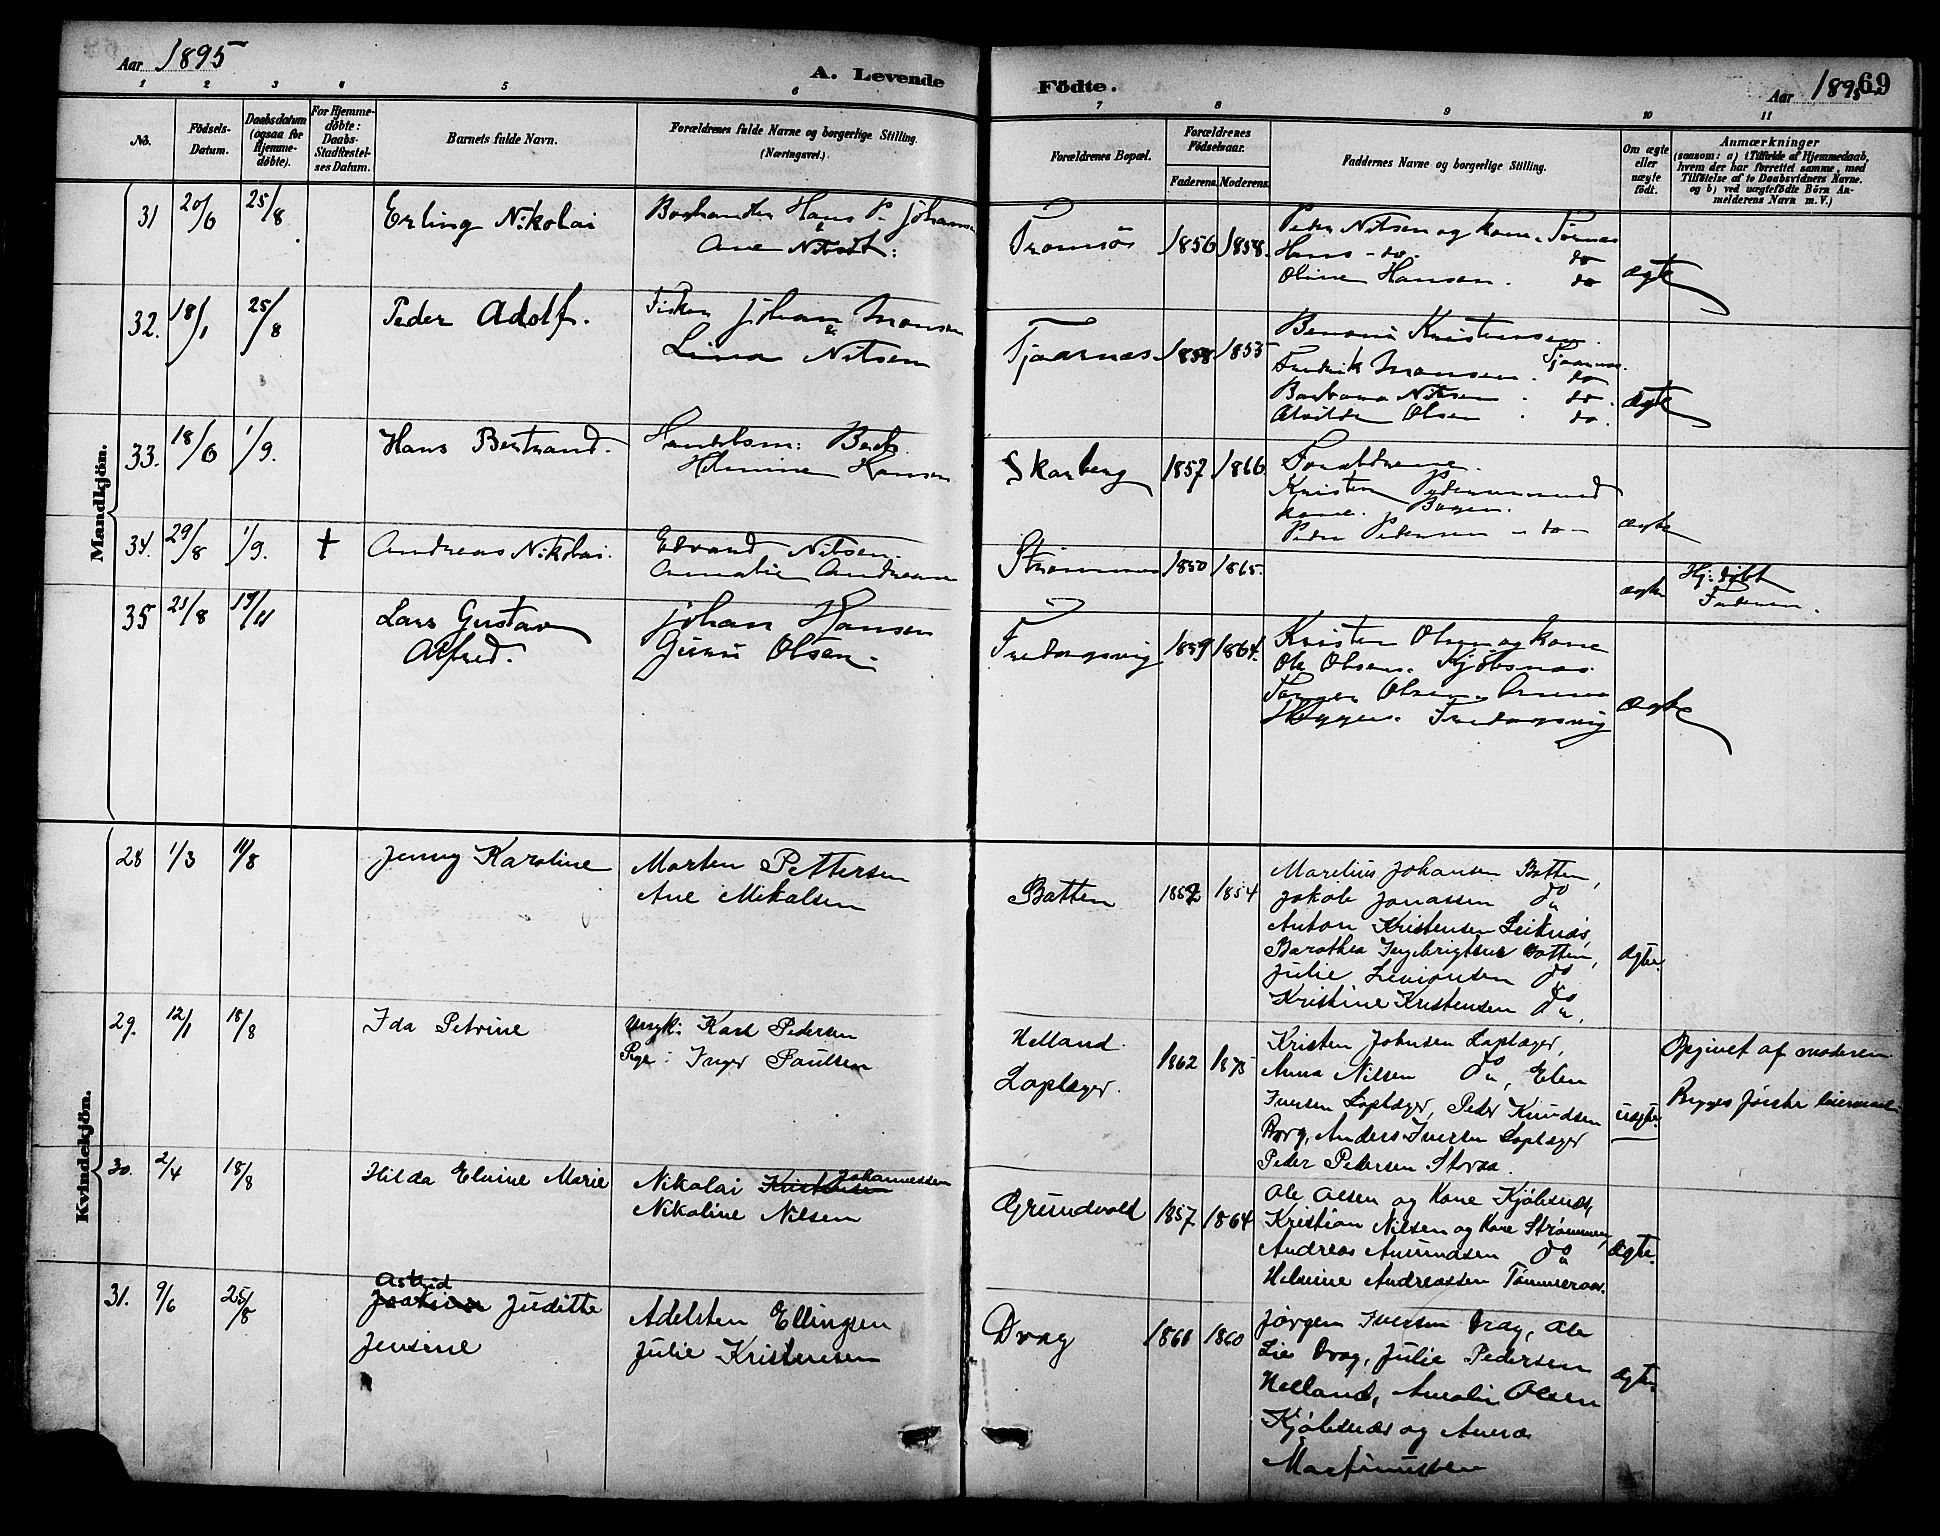 Aar 1895
A. Levende
Födte.
Aar 1895
69
1 2 3 4 5 6 7 8 9 10 11
No.
Födsels-
Datum.
Daabsdatum
(ogsaa for
Hjemme-
døbte).
For Hjemme-
døbte:
Daabs-
Stadfæstel-
ses Datum.
Barnets fulde Navn.
Forældrenes fulde Navne og borgerlige Stilling.
(Næringsvei.)
Forældrenes Bopæl.
Forældrenes
Födselsaar.
Faderens. Moderens.
Faddernes Navne og borgerlige Stilling.
Om ægte
eller
uægte
født.
Anmærkninger
(saasom: a) i Tilfælde af Hjemmedaab,
hvem der har forrettet samme, med
Tilføtelse af to Daabsvidners Navne.
og b) ved uægtefødte Börn An-
melderens Navn m. V.)
Mandkjön.
31 20/6 25/8 Erling Nikolai
Hans P. Johansen
&
Ane
Tromsös 1856 1858.
Peder Nilsen og kone
Hans - do. do
Oline Hansen. do
ægte
32. 18/1 25/8 Peder Adolf.
Fisker Johan Monsen
&
Lina Nilsen
Tjaarnæs 1858 1855
Benoni Kristensen
Tjaarnæs.
Fredrik Monsen. do
Barbara Nilsen. do.
Alvilde Olsen. do.
ægte
33. 18/6 1/9. Hans Bertrand.
Handelsm:
Helmine Hansen
Skarberg 1857 1866
Forældrene.
Kristen
kone. Bogen.
Peder Pedersen - do -
ægte
34. 29/8 1/9. † Andreas Nikolai.
Edvard Nilsen.
Amalie Andreasen
Strömmen 1850 1865.
ægte
Hj: döbt
Faderen.
35 25/8 19/11 Lars Gustav
Alfred.
Johan Hansen
Guru Olsen.
Fredagsvig 1859 1864.
Kristen Olsen og kone
Ole Olsen. Kjöbsnæs.
Olsen
Fredagsvig
ægte
Kvindekjön.
28 1/3 11/8 Jenny Karoline
Morten Pettersen
Ane Mikalsen
Botten 1854
Marelius Johansen Botten,
Jakob Jonassen do
Anton Kristensen Leiknæs,
Barothea Ingebrigtsen Botten,
Julie Simonsen do
Kristine Kristensen do,
Ægte.
29. 12/1 18/8 Ida Petrine
Ungk: Karl Pedersen
Pige: Inger Paulsen
Helland
Loplæger. 1862 1875
Kristen Johnsen Loplæger,
Anna Nilsen do, Elen
Iversen Loplæger, Peder Knudsen
Borg, Anders Iversen Loplæger
Peder Pedersen Storaa.
uægte.
Opgivet af moderen
Begges første leiermaal.
30. 2/4 18/8 Hilda Elvine Marie
Nikolai Kristensen Johannessen
Nikoline Nilsen
Grundvold 1857 1864
Ole Olsen og Kone Kjöbsnæs,
Kristian Nilsen og Kone Strömmen,
Andreas Amundsen do
Helmine Andreassen Tömmeraas.
Ægte.
31. 9/6 25/8 Astrid
Juditte
Jensine
Adelsten Ellingsen
Julie Kristensen
Drag 1860
Jørgen Iversen Drag, Ole
Lie Drag, Julie Pedersen
Helland, Amalie Olsen
Kjöbsnæs og Anna
Martinussen
Ægte.